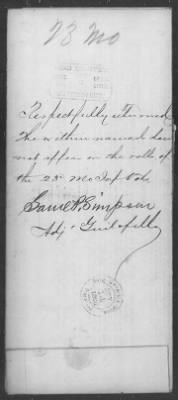 23 Mo
Respectfully returned
The within named does
not appear on the rolls of
the 23" Mo Inf Vols
Saml P. Simpson
Adj't Genl of Mo